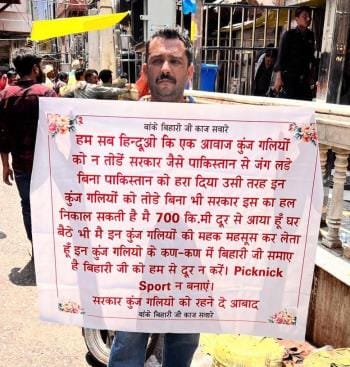 बांके बिहारी जी काज सवारे
हम सब हिन्दूओ कि एक आवाज कुंज गलियों
को न तोडें सरकार जैसे पाकिस्तान से जंग लडे
बिना पाकिस्तान को हरा दिया उसी तरह इन
कुंज गलियों को तोडे बिना भी सरकार इस का हल
निकाल सकती है मै 700 कि.मी दूर से आया हूँ घर
बैठे भी मै इन कुंज गलियों की महक महसूस कर लेता
हूँ इन कुंज गलियों के कण-कण में बिहारी जी समाए
है बिहारी जी को हम से दूर न करें। Picknick
Sport न बनाएं।
सरकार कुंज गलियों को रहने दे आबाद
बांके बिहारी जी काज सवारे